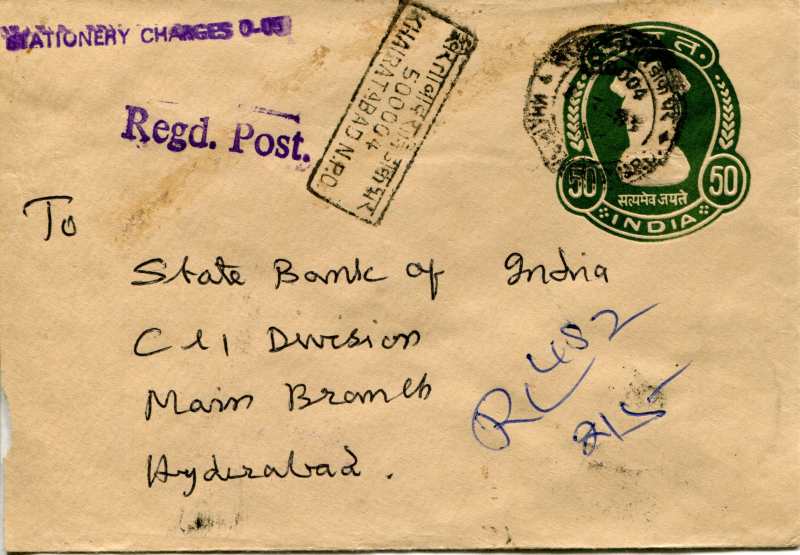 STATIONERY CHARGES 0-05
Regd. Post.
खैरताबाद रात डाक घर
500004
KHAIRATABAD N.P.O.
भारत
50 50
सत्यमेव जयते
INDIA
To
State Bank of India
C & I Division
Main Branch
Hyderabad.
RL 482